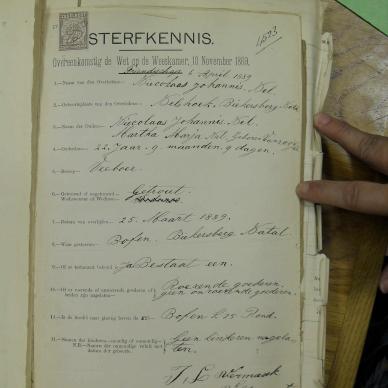 1,523
STERFKENNIS.
Overeenkomstig de Wet op de Weeskamer, 10 November 1889.
6 April 1889
1.—Naam van den Overledene— Nicolaas Johannis. Nel.
2.—Geboorteplaats van den Overledene— Nelshoek, Biekersberg Natal
3.—Namen der Ouders— Nicolaas Johannis. Nel.
Martha Maria Nel, Geboren
4.—Ouderdom— 22. Jaar. 9. maanden. 9 dagen.
5.—Beroep— Veeboer
6.—Getrouwd of ongetrouwd— Getrout.
Weduwnaar of Weduwe—
7.—Datum van overlijden— 25. Maart 1889.
8.—Waar gestorven— Bofen. Biekersberg Natal
9.—Of er testament bestaat Ja Bestaat een.
10.—Of er roerende of onroerende goederen of beiden zijn nagelaten— Roerende goederen. geen onroerende goederen.
11.—Is de boedel naar gissing boven de £15— Bofen £ 15 Pond.
12.—Namen der kinderen— Geen kinderen nagelaten.
J. L Vermaak